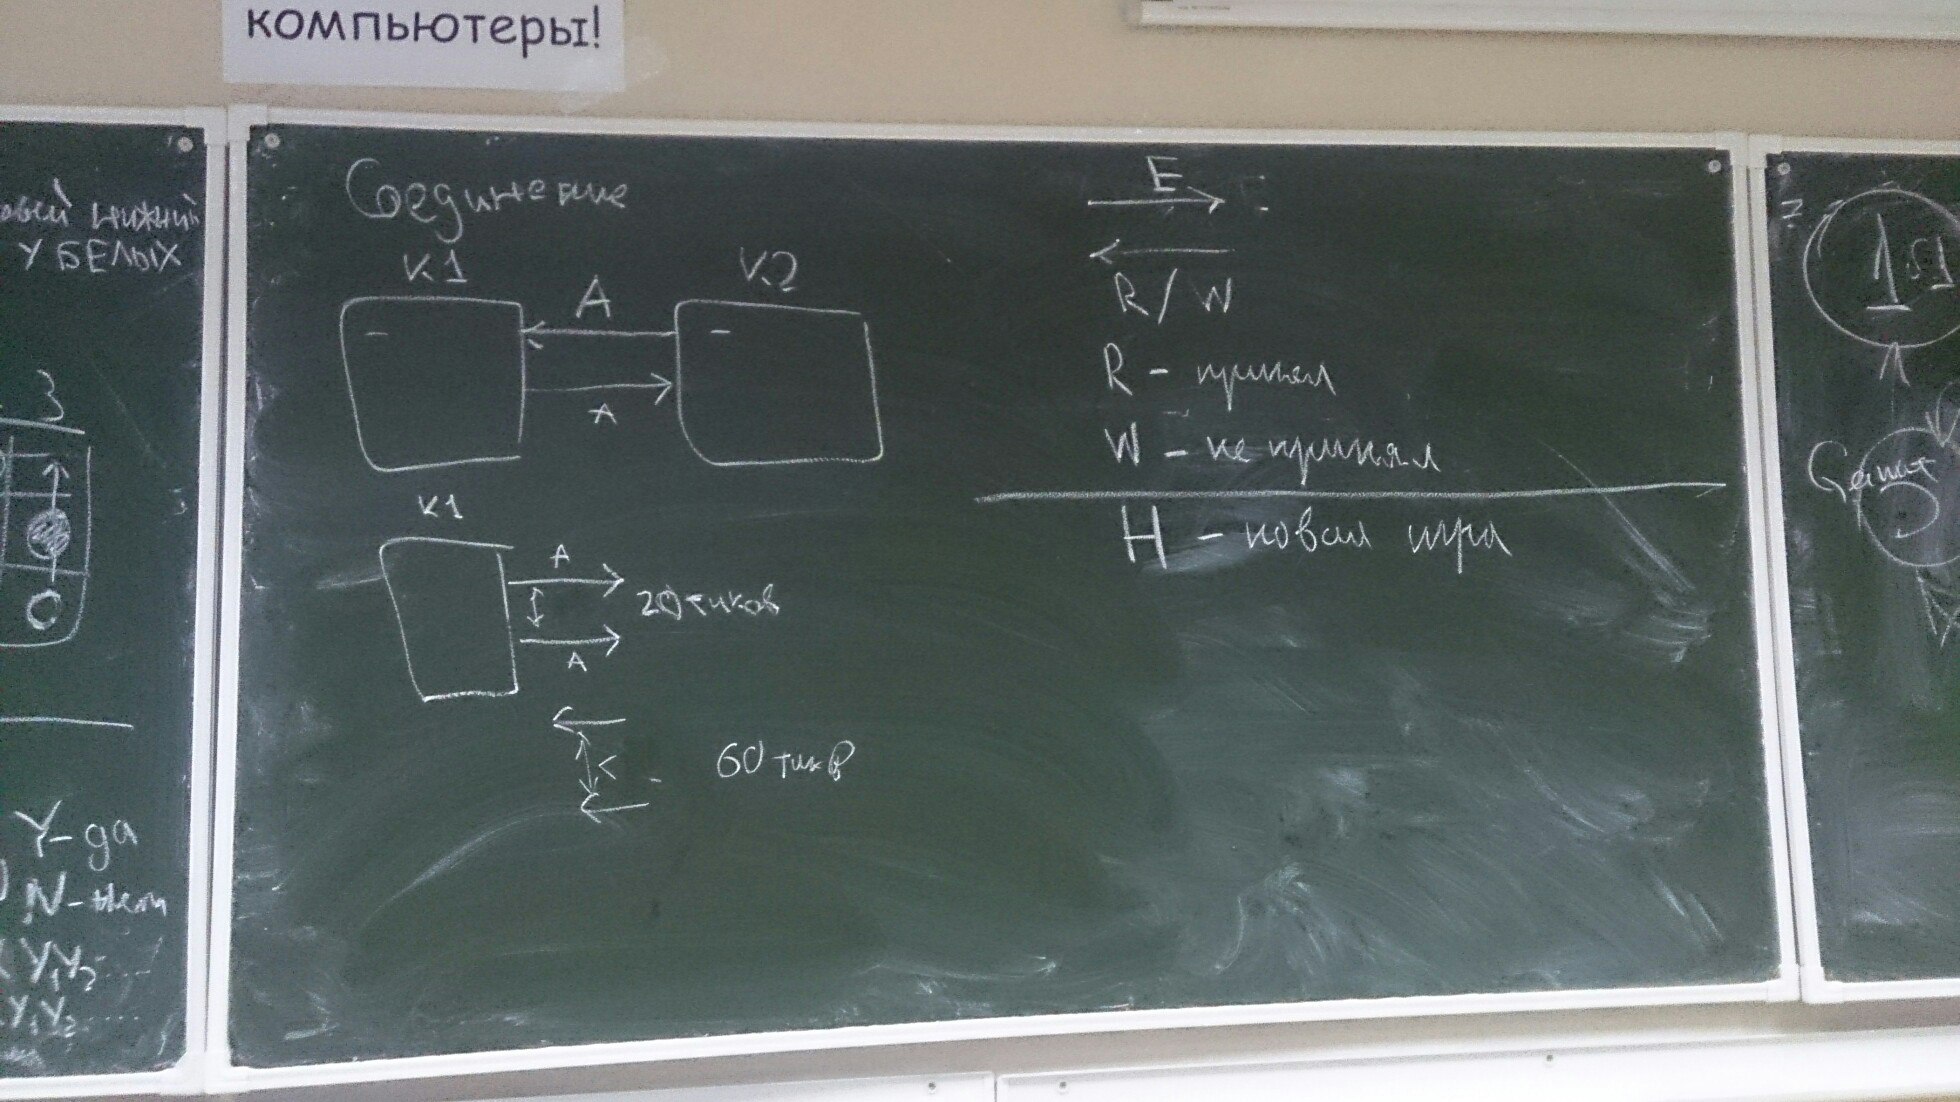 компьютеры!
нижний
У БЕЛЫХ
3
Y-да
N-нет
Соединение
К1
К2
A
A
К1
A
20 тиков
A
<
60 тиков
E
R/W
R - принял
W - не принял
H - новая игра
1